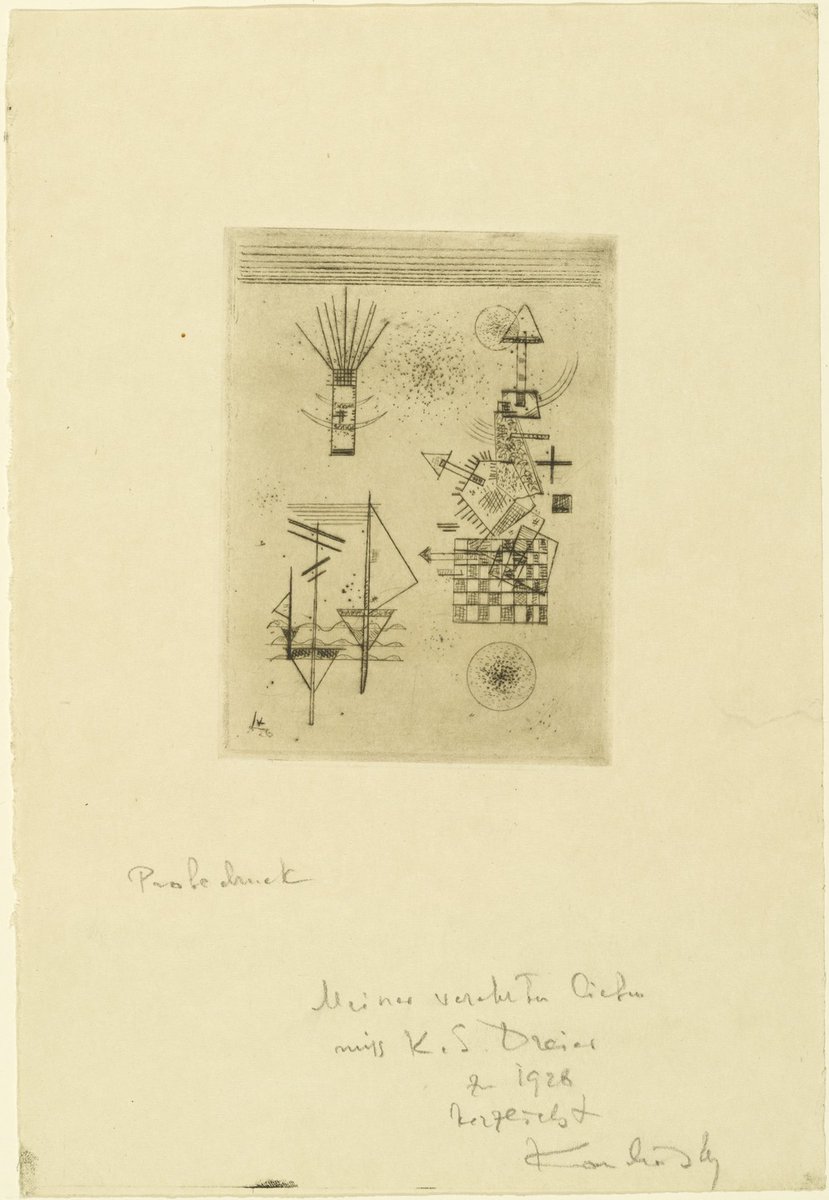 26
Probedruck
Meiner verehrten lieben
miss K. S. Dreier
zu 1928
herzlichst
Kandinsky